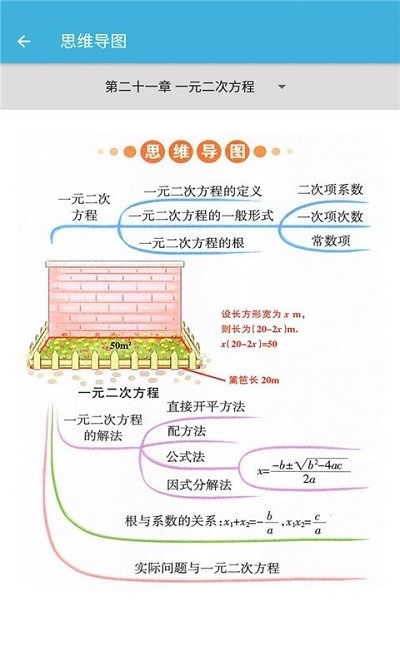 思维导图
第二十一章 一元二次方程
思维导图
一元二次
方程
一元二次方程的定义
一元二次方程的一般形式
一元二次方程的根
二次项系数
一次项次数
常数项
50m²
设长方形宽为 x m,
则长为(20-2x)m.
x(20-2x)=50
篱笆长 20m
一元二次方程
一元二次方程
的解法
直接开平方法
配方法
公式法
因式分解法
x=\frac{-b±\sqrt{b²-4ac}}{2a}
根与系数的关系:x₁+x₂=-\frac{b}{a},x₁x₂=\frac{c}{a}
实际问题与一元二次方程